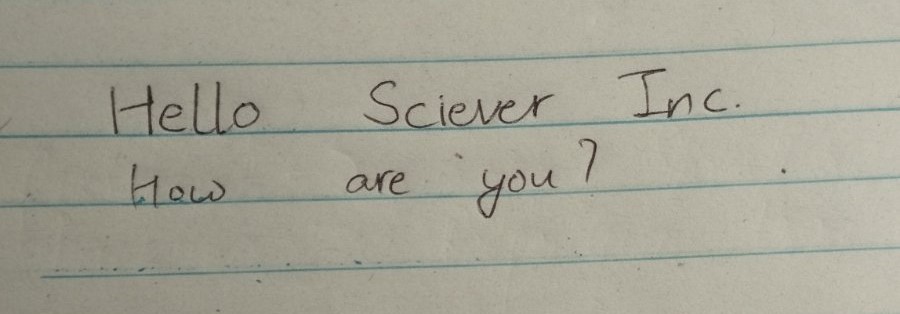 Hello Sciever Inc.
How are you?